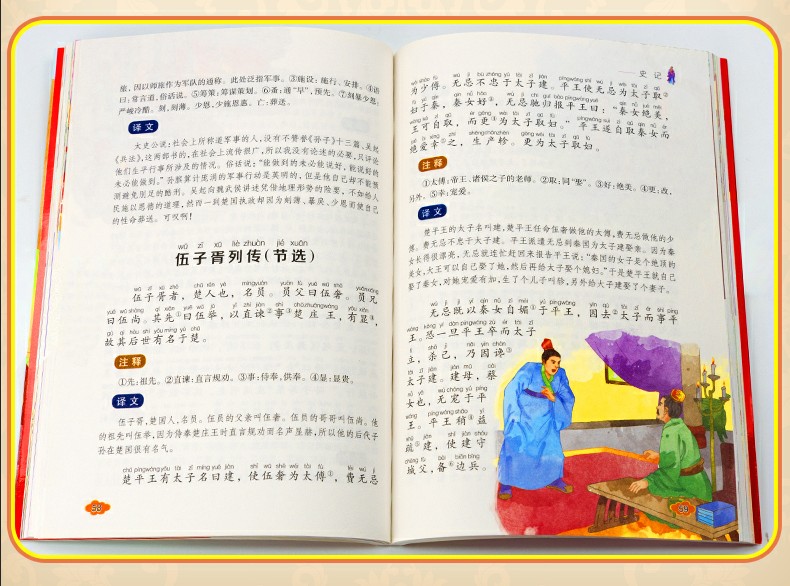 旅，因以师旅作为军队的通称。此处泛指军事。③施设：施行、安排。④语
曰：常言道，俗话说。⑤筹策：筹谋策划。⑥蚤：通“早”，预先。⑦刻暴少恩，
严峻冷酷。刻，刻薄。少恩，少施恩惠。亡：葬送。
译文
太史公说：社会上所称道军事的人，没有不赞誉《孙子》十三篇，吴起
《兵法》，这两部书的，在社会上流传很广，所以我没有论述的必要，只评论
他们生平行事所涉及的情况。俗话说：“能做到的未必能说好，能说好的
未必能做到。”孙膑算计庞涓的军事行动是英明的，但是他自己却不能预
测避免刖足的酷刑。吴起向魏武侯讲述凭借地理形势的险要，不如给人
民施以恩德的道理，然而一到楚国执政却因为刻薄、暴戾、少恩而使自己
的性命葬送。可叹啊！
wǔ zǐ xū liè zhuàn jié xuǎn
伍子胥列传（节选）
伍子胥者，楚人也，名员。员父曰伍奢。员兄
曰伍尚。其先①曰伍举，以直谏②事③楚庄王，有显④，
故其后世有名于楚。
注释
①先：祖先。②直谏：直言规劝。③事：侍奉，供奉。④显：显贵。
译文
伍子胥，楚国人，名员。伍员的父亲叫伍奢。伍员的哥哥叫伍尚。他
的祖先叫伍举，因为侍奉楚庄王时直言规劝而名声显赫，所以他的后代子
孙在楚国很有名气。
楚平王有太子名曰建，使伍奢为太傅①，费无忌
58
史记
为少傅。无忌不忠于太子建。平王使无忌为太子取②
妇于秦，秦女好③，无忌驰归报平王曰：“秦女绝美，
王可自取，而更④为太子取妇。”平王遂自取秦女而
绝爱幸⑤之，生子轸。更为太子取妇。
注释
①太傅：帝王、诸侯之子的老师。②取：同“娶”。③好：绝美。④更：改，
另外。⑤幸：宠爱。
译文
楚平王的太子名叫建，楚平王任命伍奢做他的太傅，费无忌做他的少
傅。费无忌不忠于太子建。平王派遣无忌到秦国为太子建娶亲。因为秦
女长得很漂亮，无忌就连忙赶回来报告平王说：“秦国的女子是个绝顶的
美女，大王可以自己娶了她，然后再给太子娶个媳妇。”于是楚平王就自己
娶了秦女，对她宠爱有加，生了个儿子叫轸，另外给太子建娶了个妻子。
无忌既以秦女自媚①于平王，因去②太子而事平
王。恐一旦平王卒而太子
立，杀己，乃因谗③
太子建。建母，蔡
女也，无宠于平
王。平王稍④益
疏⑤建，使建守
城父，备⑥边兵。
59